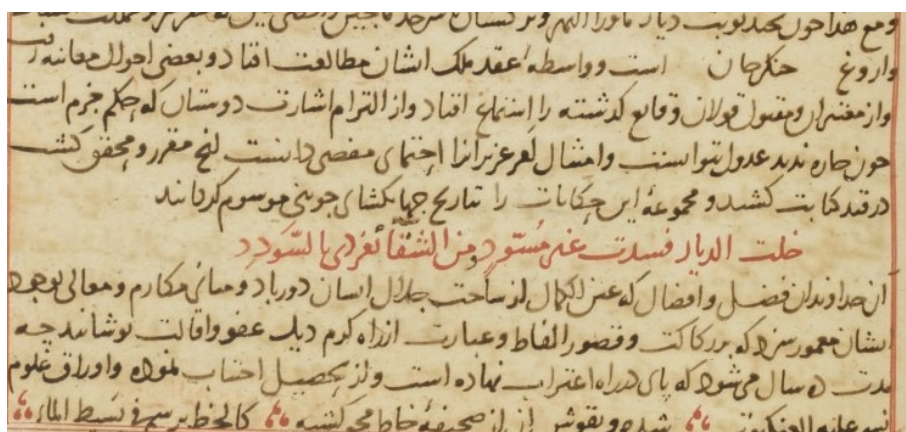 ومع هذا چون چند نوبت دیار ماوراء النهر وترکستان تا سرحد
واروغ چنکزخان است وواسطهٔ عقد ملک ایشان مطالعت افتاد وبعضی احوال معاینه رفت
واز معتبران ومقبول قولان وقایع کذشته را استماع افتاد واز التزام اشارت دوستان که حکم جزم است
چون چاره ندید عدول نتوانست وامتثال امر عزیزانرا مقضی دانست انچ مقرر ومحقق کشت
درقید کتابت کشید ومجموعهٔ این حکایات را بتاریخ جهانکشای جوینی موسوم کردانید
خلت الدیار فسدت غیر مسود ومن الشقاء تفردی بالسودد
از خداوندان فضل وافضال که عین الکمال از ساحت جلال ایشان دور باد ومبانی مکارم ومعالی بوجود
ایشان معمور سزد که بر رکاکت وقصور الفاظ وعبارت ازراه کرم ذیل عفو واقالت پوشانند چه
مدت ده سال می شود که پای در راه اغتراب نهاده است واز تحصیل اجتناب نموده واوراق علوم
نسج علیه العنکبوت شده ونقوش آن از صحیفهٔ خاطر محو کشته کالخط یرسم فی بسیط الماء